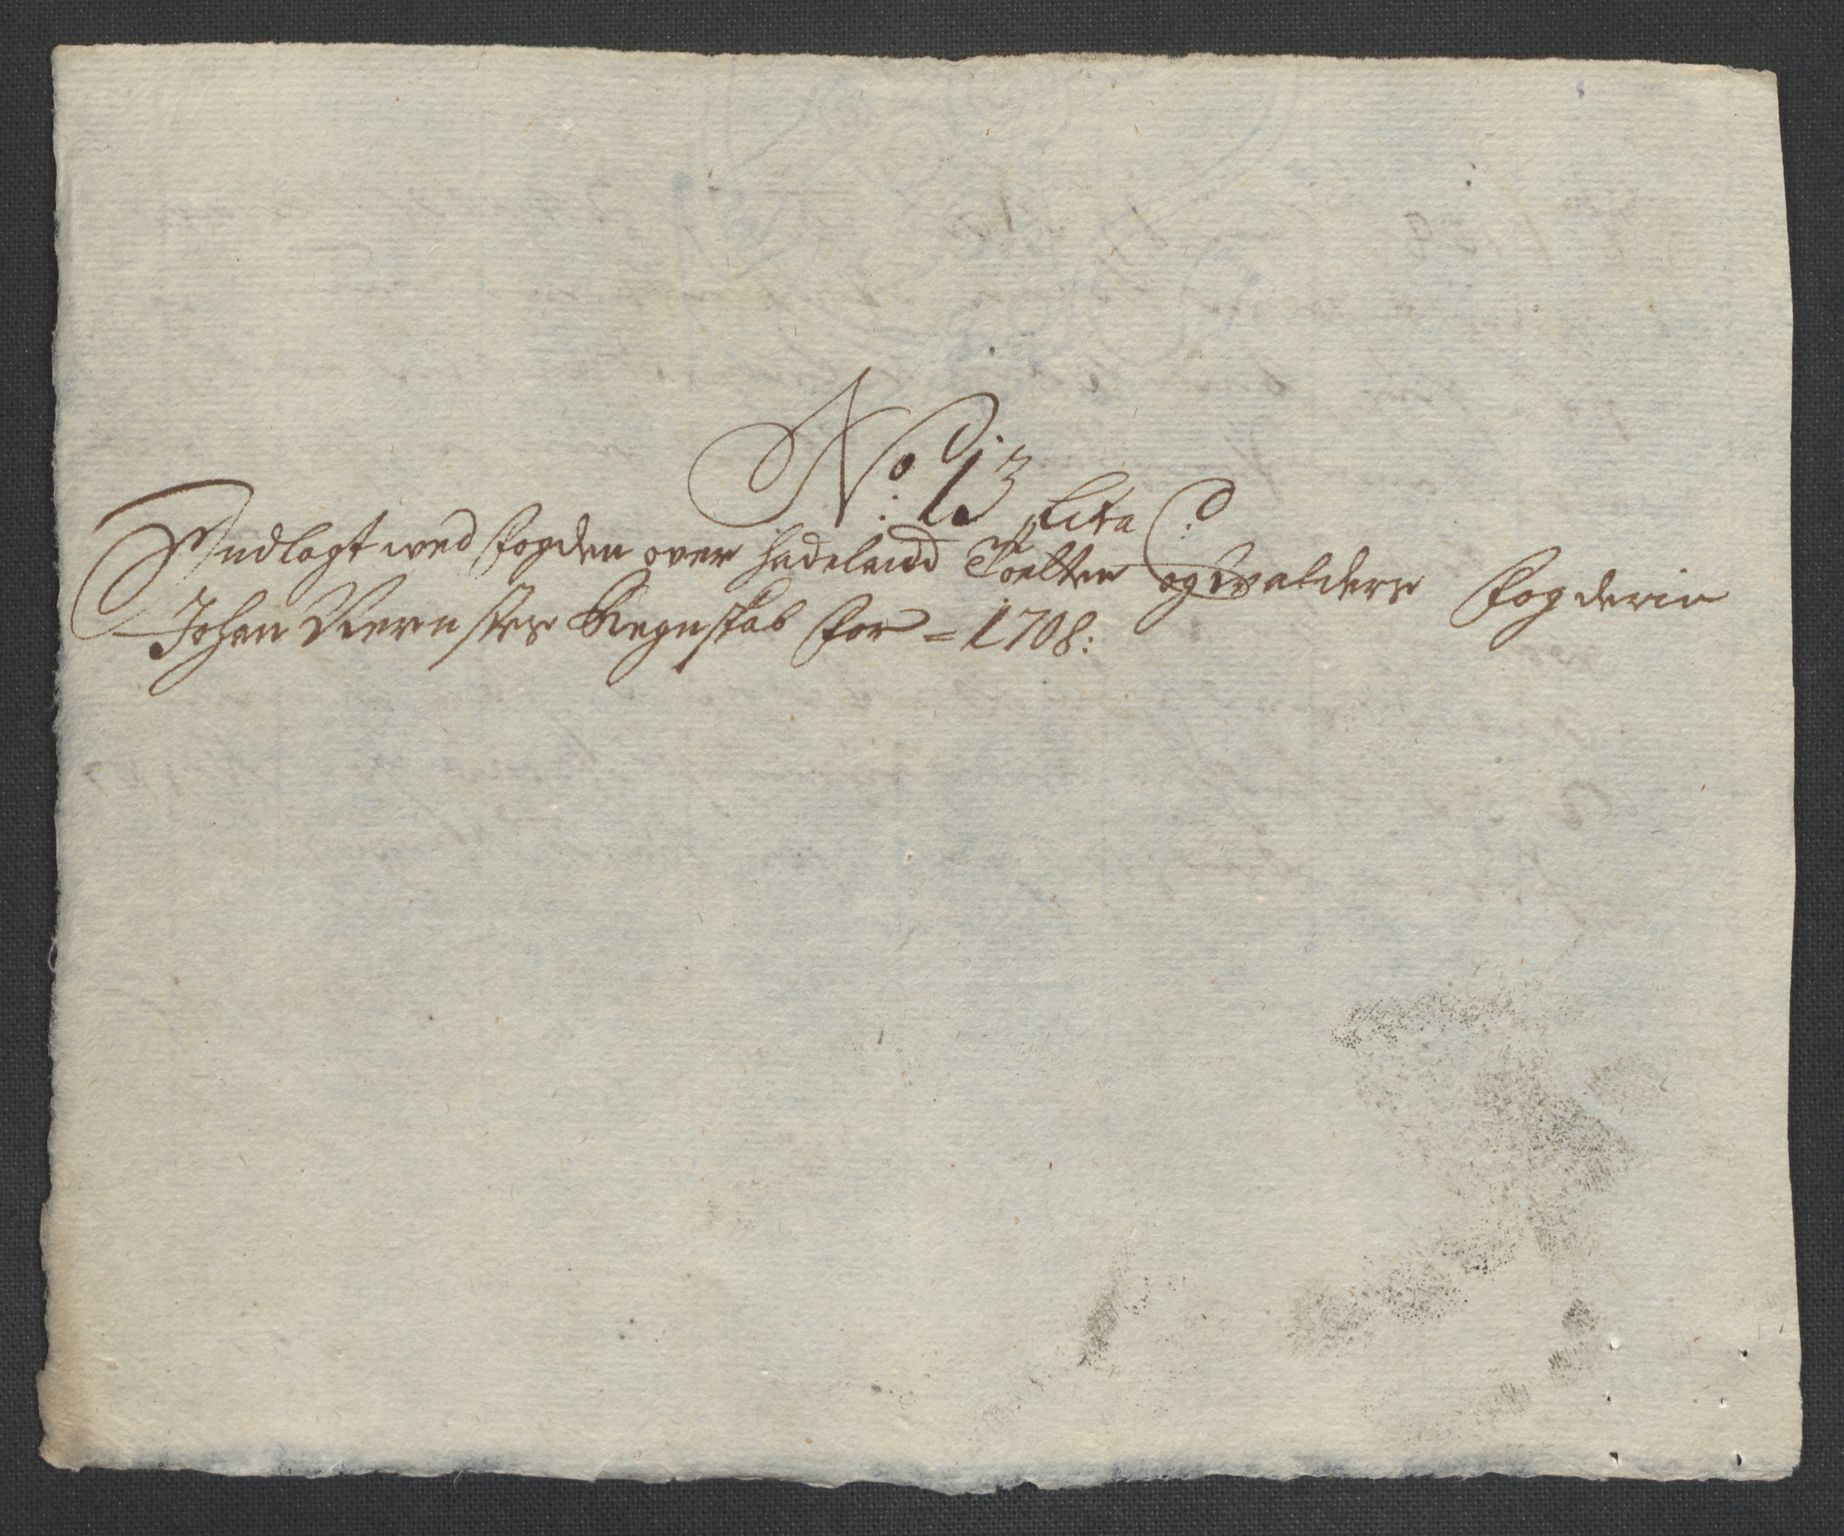 No: 13 Litra C:
Indlagt wed fogden over Hadeland Toelten og Walders fogderie
Johan Vernstes Regnskab for = 1708: